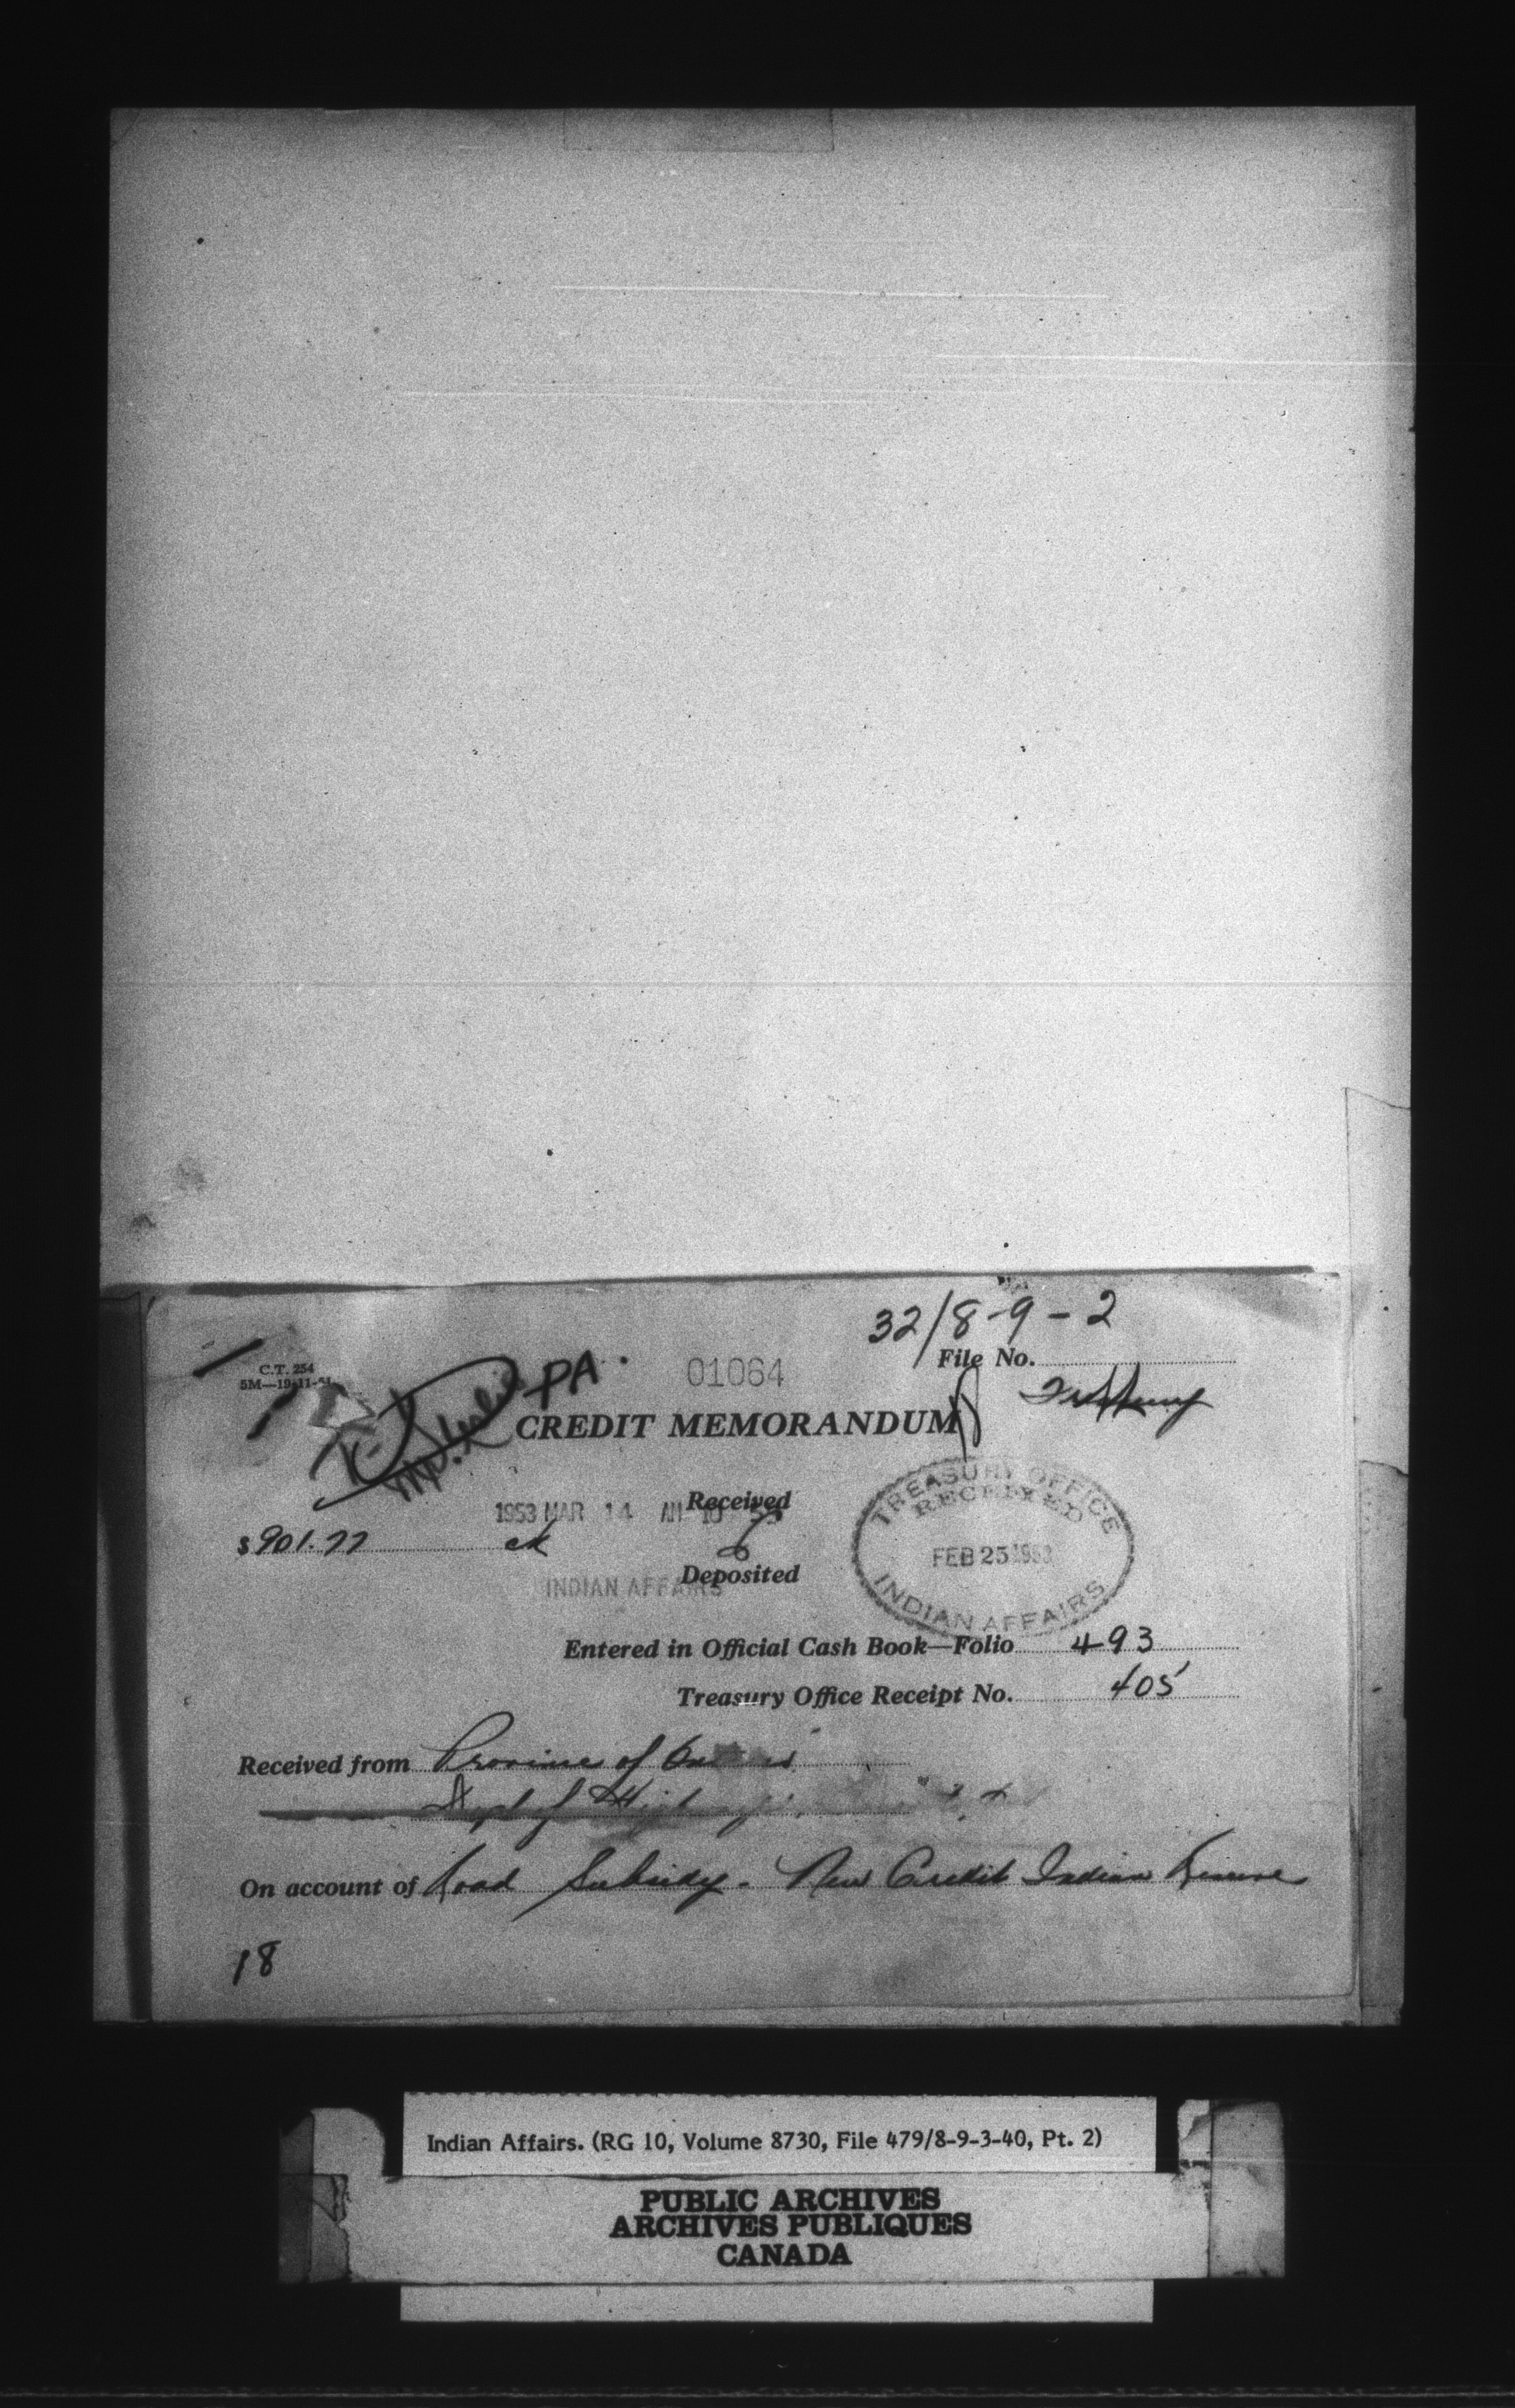 32/8-9-2
File No.
C.T. 254
5M—19-11-51
PA.
01064
CREDIT MEMORANDUM
TREASURY OFFICE
RECEIVED
FEB 25 1953
INDIAN AFFAIRS
Received
1953 MAR 14 AM 10
$901.77 ck
Deposited
INDIAN AFFAIRS
Entered in Official Cash Book—Folio 493
Treasury Office Receipt No. 405
Received from Province of
Dept of
On account of Road Subsidy - New Credit Indian Reserve
18
Indian Affairs. (RG 10, Volume 8730, File 479/8-9-3-40, Pt. 2)
PUBLIC ARCHIVES
ARCHIVES PUBLIQUES
CANADA